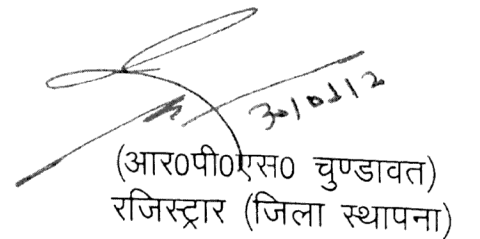 (आर0पी0एस0 चुण्डावत)
रजिस्ट्रार (जिला स्थापना)